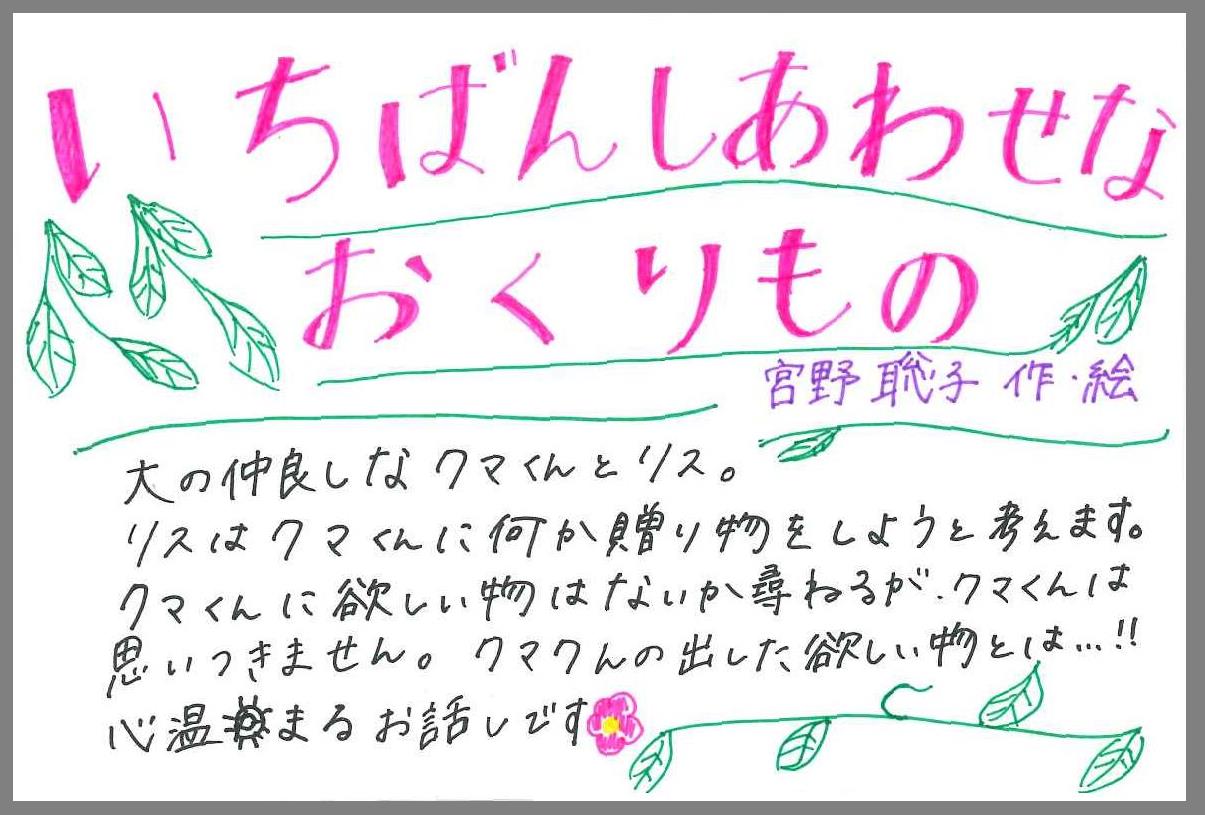 いちばんしあわせな
おくりもの
宮野聡子 作・絵
大の仲良しなクマくんとリス。
リスはクマくんに何か贈り物をしようと考えます。
クマくんに欲しい物はないか尋ねるが、クマくんは
思いつきません。クマクんの出した欲しい物とは…!!
心温まるお話しです